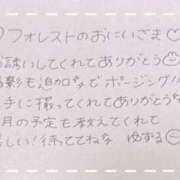 ♡フォレストのおにいさま♡
お誘いしてくれてありがとう☺
影も迫力でポージング
手に撮ってくれてありがとう
月の予定も教えてくれて
しい!待っててね ゆずる☺